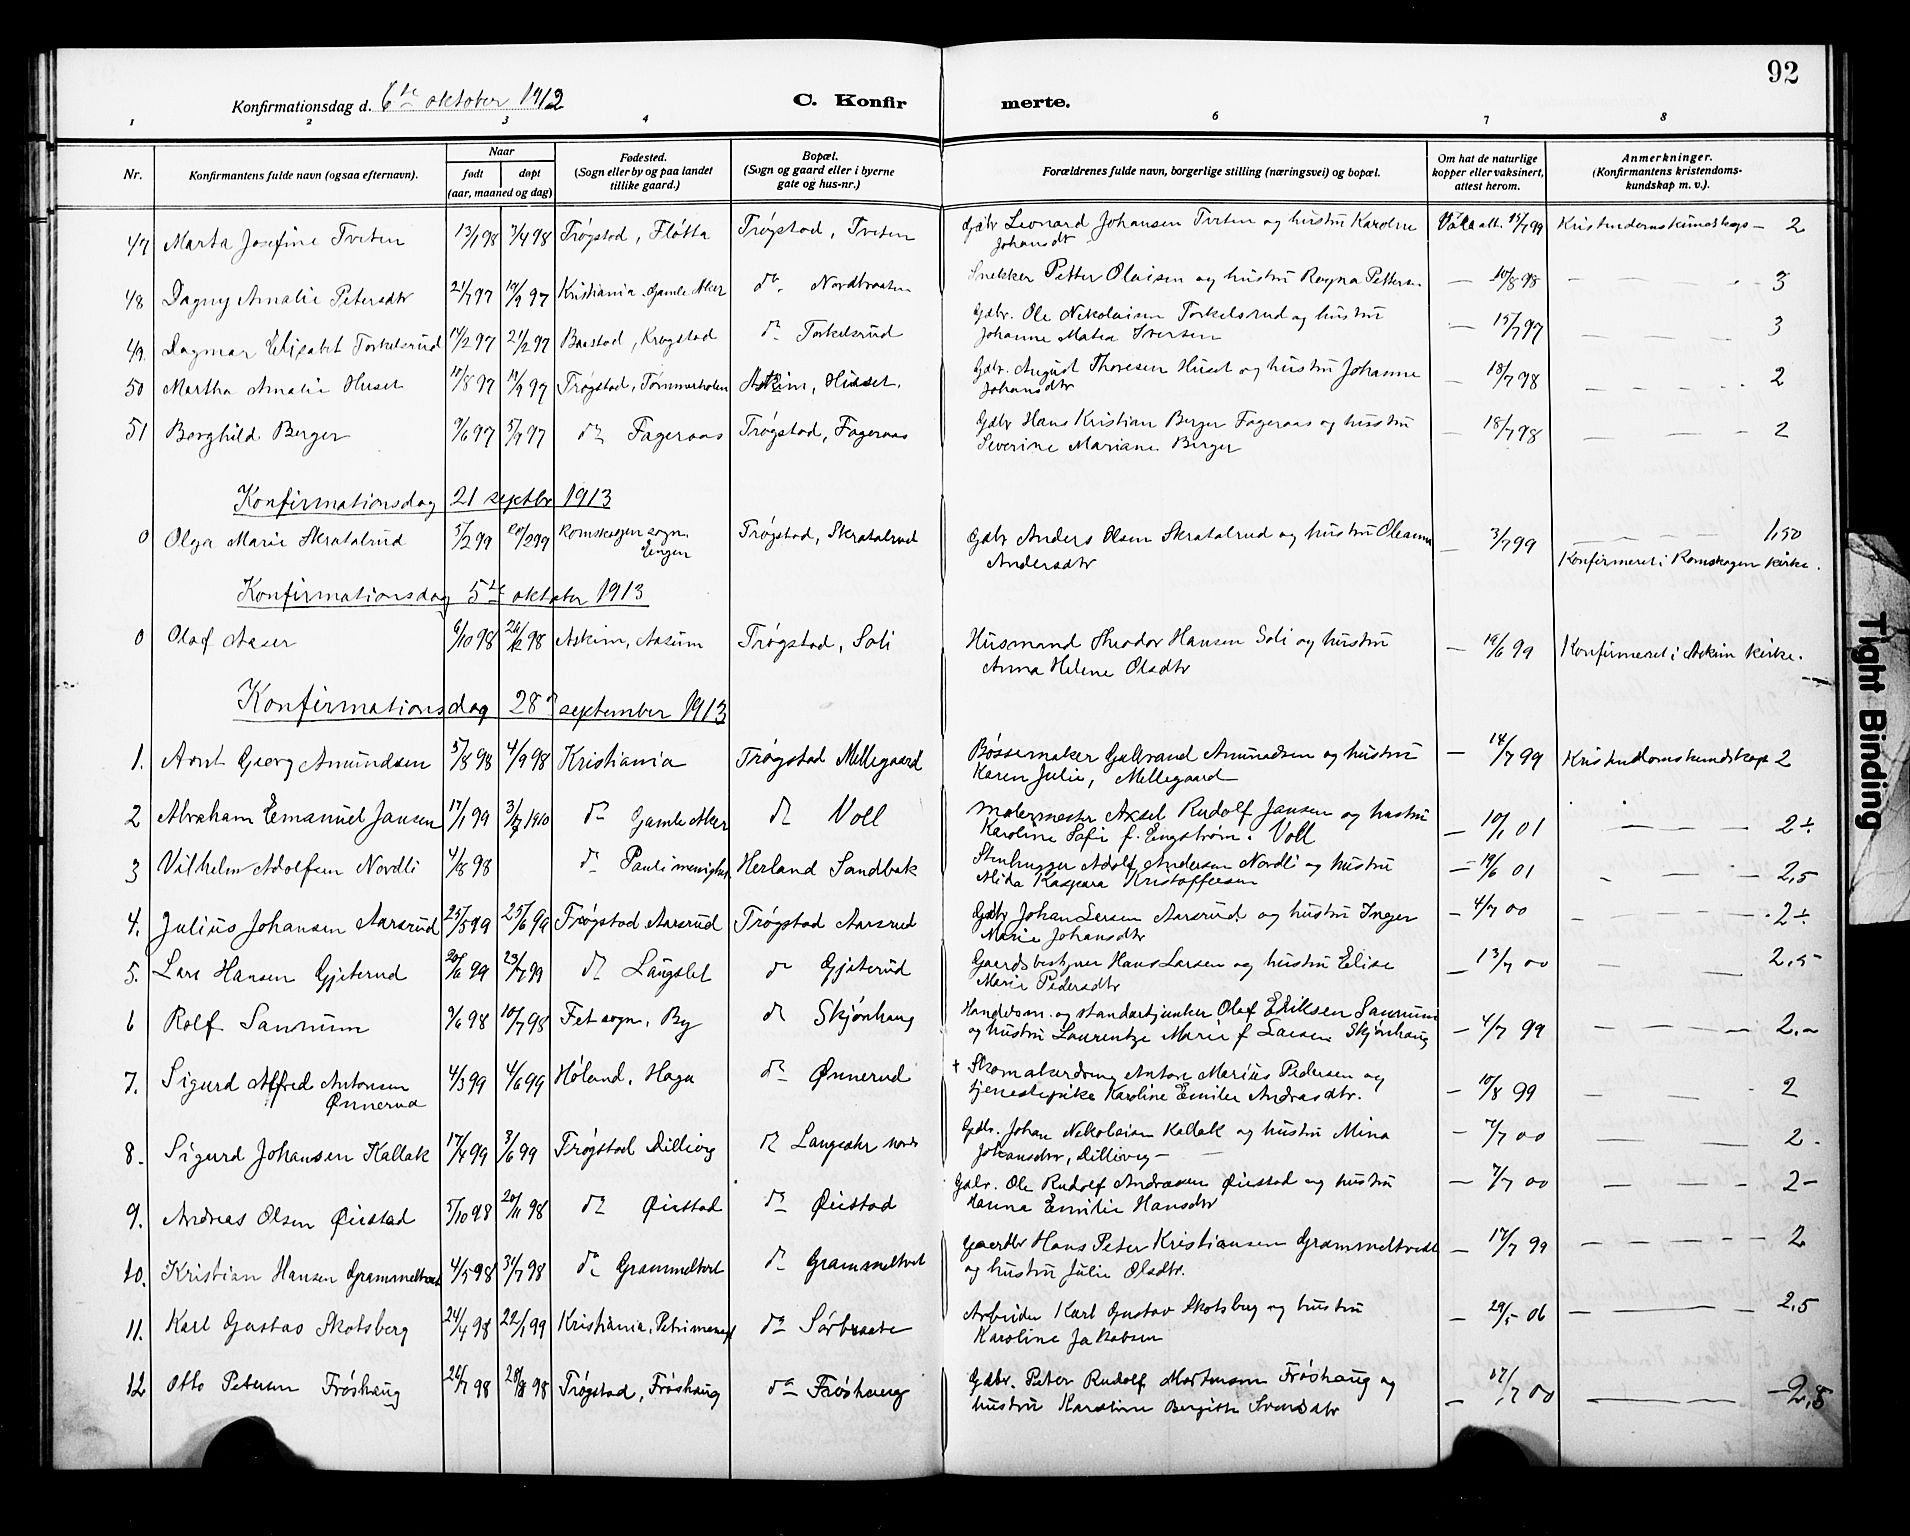 92
Konfirmationsdag d. 6te oktober 1912 C. Konfirmerte.
1 2 3 4 5 6 7 8
Nr. Konfirmantens fulde navn (ogsaa efternavn). Naar født døpt (aar, maaned og dag) Fødested. (Sogn eller by og paa landet tillike gaard.) Bopæl. (Sogn og gaard eller i byerne gate og hus-nr.) Forældrenes fulde navn, borgerlige stilling (næringsvei) og bopæl. Om hat de naturlige kopper eller vaksinert, attest herom. Anmerkninger. (Konfirmantens kristendomskundskap m. v.).
47 Marta Josefine Tveten 13/1 98 3/4 98 Trøgstad, Fløtta Trøgstad, Tveten Gdbr Leonard Johansen Tveten og hustru Karoline Johansdtr Vac. att. 15/7 99 Kristendomskundskap — 2
48 Dagny Amalie Petersdtr 21/7 97 19/9 97 Kristiania, Gamle Aker do. Nordbraaten Snekker Petter Olaisen og hustru Ragna Pettersen — 10/8 98 — — — 3
49 Dagmar Elisabet Torkelsrud 14/2 97 21/2 97 Baastad, Krogstad do Torkelsrud Gdbr. Ole Nikolaisen Torkelsrud og hustru Johanne Matea Iversen — 15/7 97 — — — 3
50 Martha Amalie Huset 10/8 97 19/9 97 Trøgstad, Tømmerholen Askim, Huset. Gdbr. August Thoresen Huset og hustru Johanne Johansdtr — 18/7 98 — — — 2
51 Borghild Berger 9/6 97 5/9 97 do Fageraas Trøgstad, Fageraas Gdbr Hans Kristian Berger Fageraas og hustru Severine Mariane Berger — 18/7 98 — — — 2
Konfirmationsdag 21 septbr 1913
0 Olga Marie Skratalrud 5/2 99 20/2 99 Romskogen sogn. Engen Trøgstad, Skratalrud Gdbr Anders Olsen Skratalrud og hustru Oleanna Andersdtr — 3/7 99 — — — 1,50
Konfirmeret i Romskogen kirke.
Konfirmationsdag 5te oktober 1913
0 Olaf Aaser 6/10 98 26/12 98 Askim, Aasum Trøgstad, Soli Husmand Theodor Hansen Soli og hustru Anna Helene Olsdtr — 19/6 99 Konfirmeret i Askim kirke.
Konfirmationsdag 28de september 1913
1. Arnt Georg Amundsen 5/8 98 4/9 98 Kristiania Trøgstad Mellegaard Bøssemaker Gulbrand Amundsen og hustru Karen Julie, Mellegaard — 14/7 99 Kristendomskundskap 2
2 Abraham Emanuel Jansen 17/1 99 3/7 1910 do Gamle Aker do Voll Malermester Axsel Rudolf Jansen og hustru Karoline Sofie f. Engstrøm. Voll — 10/1 01 — — — 2÷
3 Vilhelm Adolfsen Nordli 4/8 98 do Pauli menighet Herland Sandbak Stenhugger Adolf Andersen Nordli og hustru Alida Kaspara Kristoffersen — 19/6 01 — — — 2,5
4. Julius Johansen Aarsrud 25/5 99 25/6 99 Trøgstad Aarsrud Trøgstad Aarsrud Gdbr Johan Larsen Aarsrud og hustru Inger Marie Johansdtr — 4/7 00 — — — 2÷
5. Lars Hansen Gjeterud 20/6 99 23/7 99 do Langslet do Gjeterud Gaardsbestyrer Hans Larsen og hustru Elise Marie Pedersdtr — 13/7 00 — — — 2,5
6 Rolf Sannum 9/6 98 10/7 98 Fet sogn, By do Skjønhaug Handelsm. og standartjunker Olaf Eriksen Sannum og hustru Laurentze Marie f. Larsen Skjønhaug — 4/7 99 — — — 2.—
7. Sigurd Alfred Antonsen Ønnerud 4/3 99 4/6 99 Høland, Haga do Ønnerud † Skomakerdreng Anton Marius Pedersen og tjenestepike Karoline Emilie Andreasdtr. — 10/8 99 — — — 2
8. Sigurd Johansen Kallak 17/4 99 3/6 99 Trøgstad Dillevig do Langsæter nordr Gdbr. Johan Nikolaisen Kallak og hustru Mina Johansdtr, Dillevig — — 7/7 00 — — — 2.
9. Andreas Olsen Øiestad 5/10 98 20/11 98 do Øiestad do Øiestad Gdbr. Ole Rudolf Andreasen Øiestad og hustru Hanna Emilie Hansdtr — 7/7 00 — — — 2—
10. Kristian Hansen Grammeltvet 4/5 98 31/7 98 do Grammeltvet do Grammeltvet Gaardbr Hans Peter Kristiansen Grammeltvedt og hustru Julie Olsdtr. — 17/7 99 — — — 2
11. Karl Gustav Skotsberg 24/4 98 22/1 99 Kristiania, Petri menigh do Sørbraate Arbeider Karl Gustav Skotsberg og hustru Karoline Jakobsen — 29/5 06 — — — 2,5
12 Otto Petersen Frøshaug 26/7 98 28/8 98 Trøgstad, Frøshaug do Frøshaug Gdbr. Peter Rudolf Mortensen Frøshaug og hustru Karoline Bergitte Svendsdtr — 17/7 00 — — — 2,5
Tight Binding